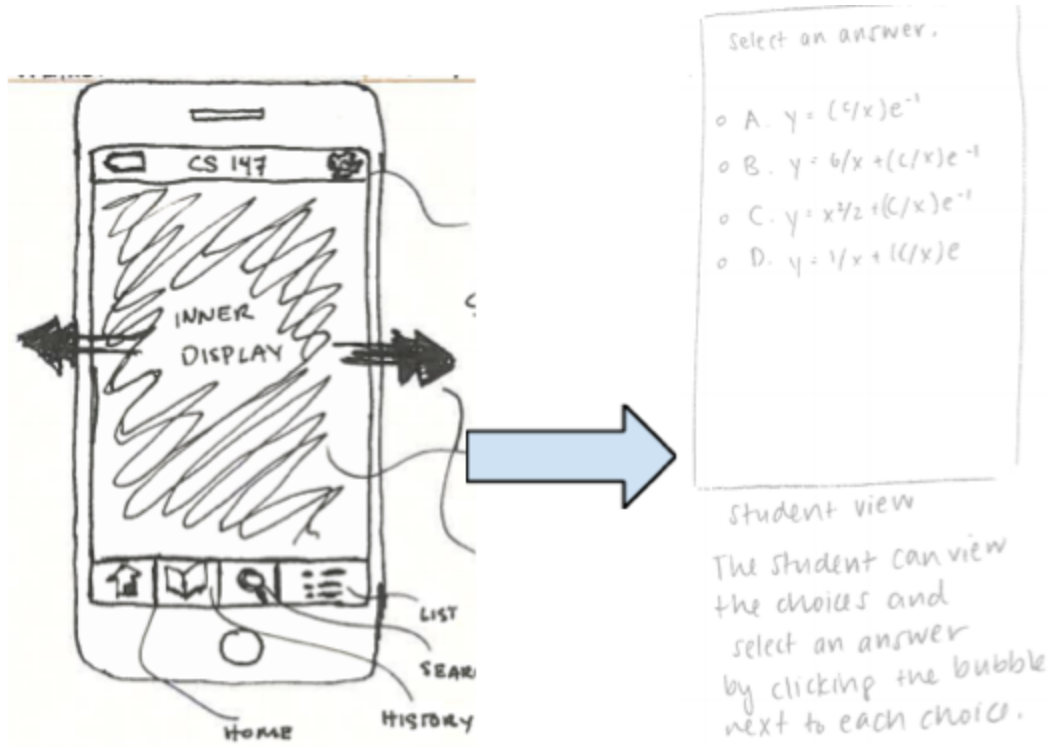 CS 147
INNER
DISPLAY
LIST
HISTORY
HOME
Select an answer.
A. y = (c/x)e⁻¹
B. y = 6/x + (c/x)e⁻¹
C. y = x²/2 + (C/x)e⁻¹
D. y = 1/x + (C/x)e
Student view
The student can view
the choices and
select an answer
by clicking the bubble
next to each choice.